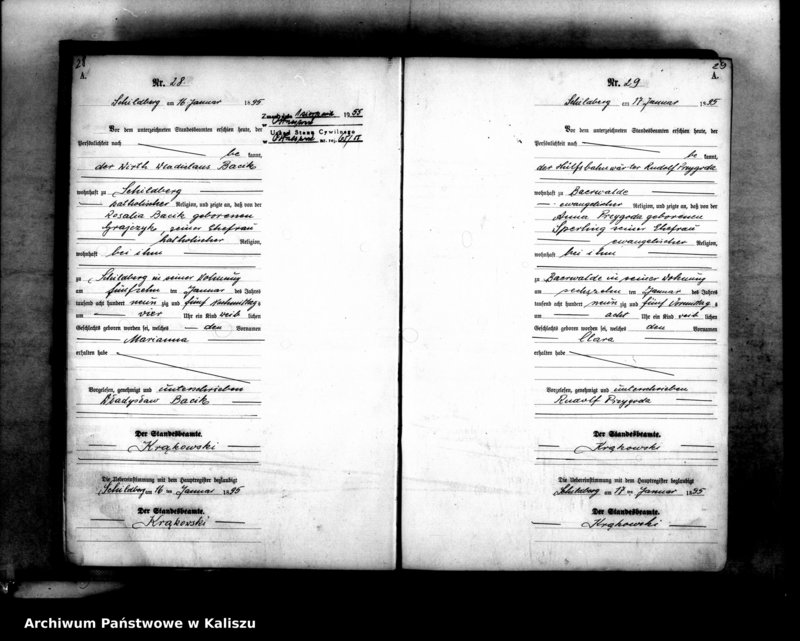 28
A.
Nr. 28
Schildberg am 16 Januar 1895
1955
w
Urząd Stanu Cywilnego
w nr. rej.
Vor dem unterzeichneten Standesbeamten erschien heute, der
Persönlichkeit nach
be kannt,
der Wirth Wladislaus Bacik
wohnhaft zu Schildberg
katholischer Religion, und zeigte an, daß von der
Rosalia Bacik geborenen
Grajczyk, seiner Ehefrau
katholischer Religion,
wohnhaft bei ihm
zu Schildberg in seiner Wohnung
am fünfzehn ten Januar des Jahres
tausend acht hundert neun zig und fünf Nachmittag s
um vier Uhr ein Kind weib lichen
Geschlechts geboren worden sei, welches den Vornamen
Marianna
erhalten habe
Vorgelesen, genehmigt und unterschrieben
Władysław Bacik
Der Standesbeamte.
Krąkowski
Die Uebereinstimmung mit dem Hauptregister beglaubigt
Schildberg am 16 ten Januar 1895
Der Standesbeamte.
Krąkowski
29
A.
Nr. 29
Schildberg am 17 Januar 1895
Vor dem unterzeichneten Standesbeamten erschien heute, der
Persönlichkeit nach
be kannt,
der Hülfsbahnwärter Rudolf Przygoda
wohnhaft zu Baerwalde
evangelischer Religion, und zeigte an, daß von der
Anna Przygoda geborenen
Sperling seiner Ehefrau
evangelischer Religion,
wohnhaft bei ihm
zu Baerwalde in seiner Wohnung
am sechszehn ten Januar des Jahres
tausend acht hundert neun zig und fünf Vormittag s
um acht Uhr ein Kind weib lichen
Geschlechts geboren worden sei, welches den Vornamen
Clara
erhalten habe
Vorgelesen, genehmigt und unterschrieben
Rudolf Przygoda
Der Standesbeamte.
Krąkowski
Die Uebereinstimmung mit dem Hauptregister beglaubigt
Schildberg am 17 ten Januar 1895
Der Standesbeamte.
Krąkowski
Archiwum Państwowe w Kaliszu